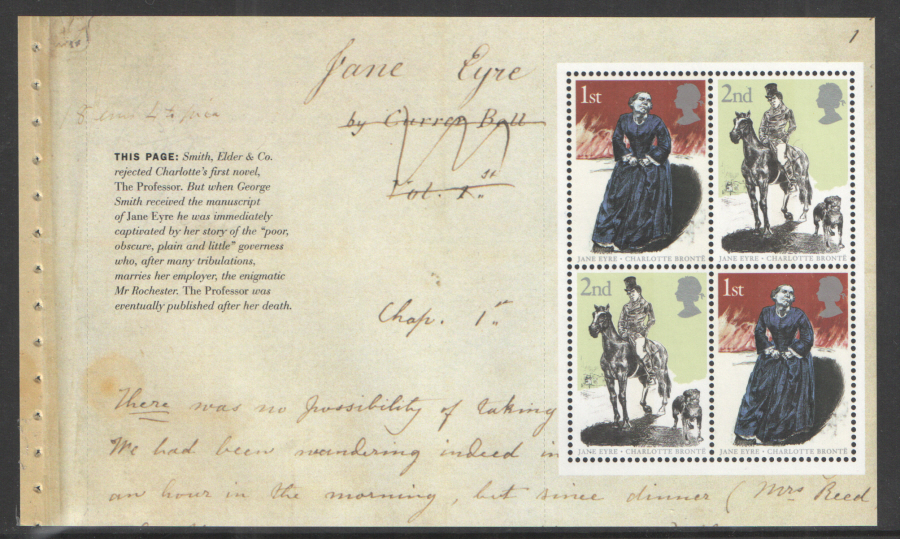 1
Jane Eyre
by Currer Bell
Vol. 1.st
THIS PAGE: Smith, Elder & Co.
rejected Charlotte's first novel,
The Professor. But when George
Smith received the manuscript
of Jane Eyre he was immediately
captivated by her story of the "poor,
obscure, plain and little" governess
who, after many tribulations,
marries her employer, the enigmatic
Mr Rochester. The Professor was
eventually published after her death.
Chap. 1.st
There was no possibility of taking
We had been wandering indeed in
an hour in the morning, but since dinner (Mrs Reed
1st
JANE EYRE • CHARLOTTE BRONTË
2nd
JANE EYRE • CHARLOTTE BRONTË
2nd
JANE EYRE • CHARLOTTE BRONTË
1st
JANE EYRE • CHARLOTTE BRONTË